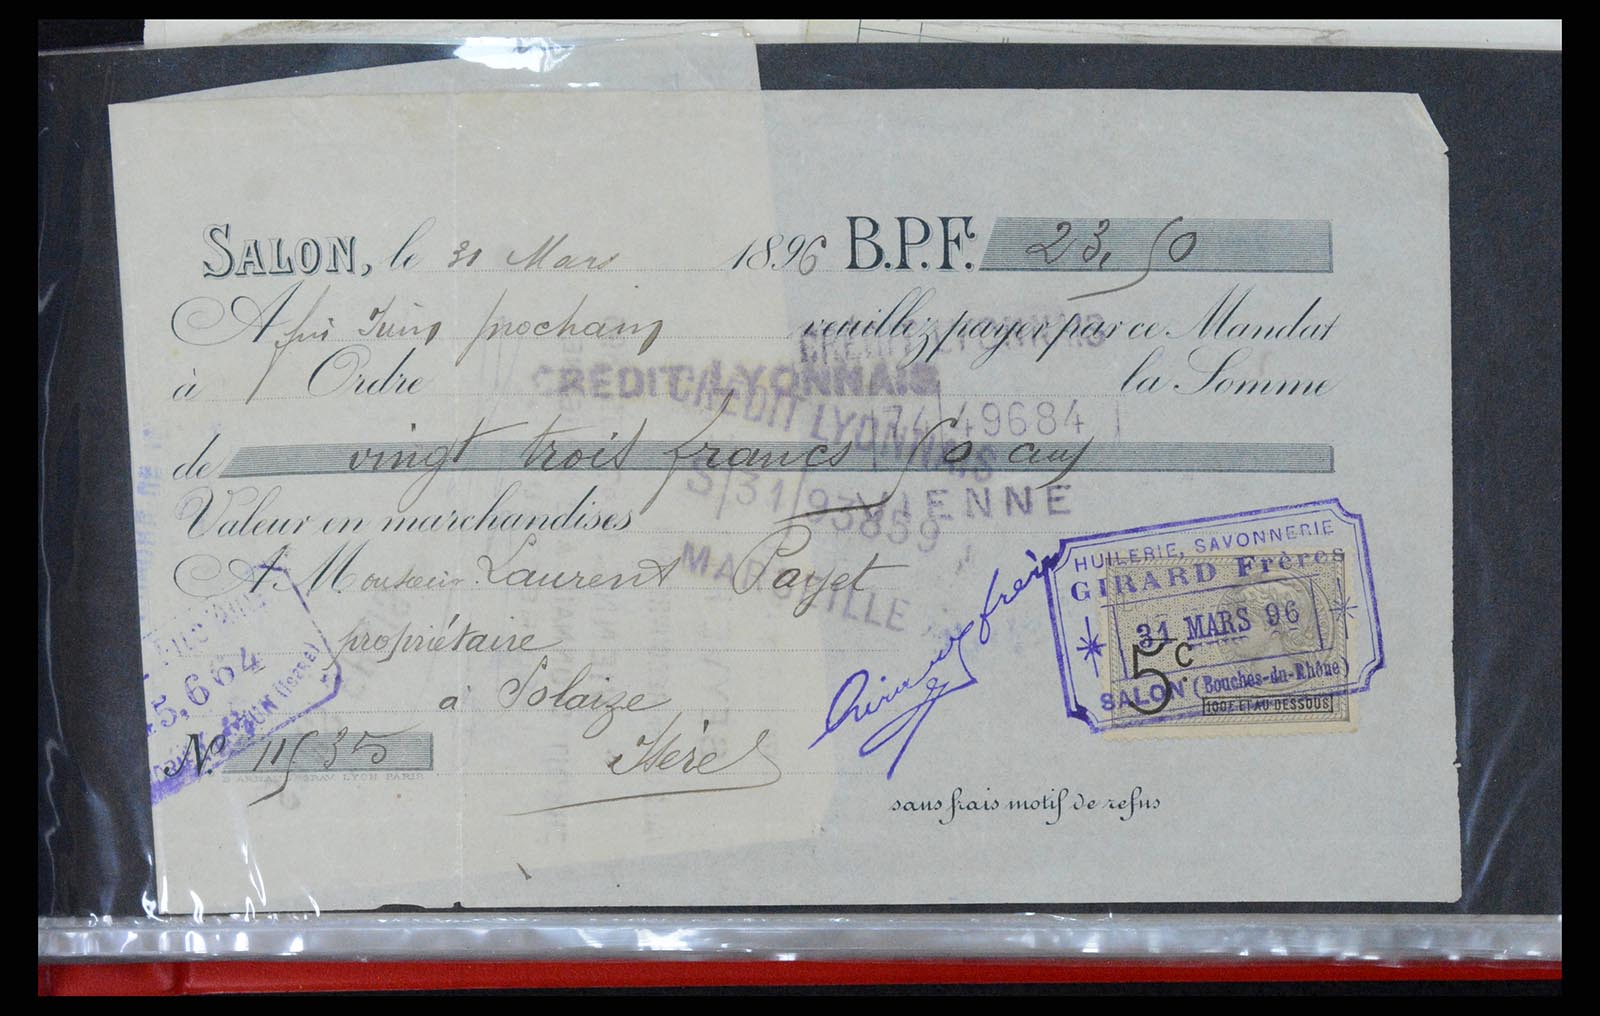 SALON, le 31 Mars 1896 B.P.F. 23,50
A fin Juin prochain veuillez payer par ce Mandat
à / Ordre la Somme
de vingt trois francs 50 ces
Valeur en marchandises
A Monsieur Laurent Payet
propriétaire
à Solaize
Isère
No. 11535
sans frais motif de refus
CREDIT LYONNAIS
CREDIT LYONNAIS
CREDIT LYONNAIS
74 49684
S/31/93859
VIENNE
MARSEILLE
Girard frères
HUILERIE, SAVONNERIE
GIRARD Frères
31 MARS 96
5c.
SALON (Bouches-du-Rhône)
100F ET AU DESSOUS
5,664
(Isère)